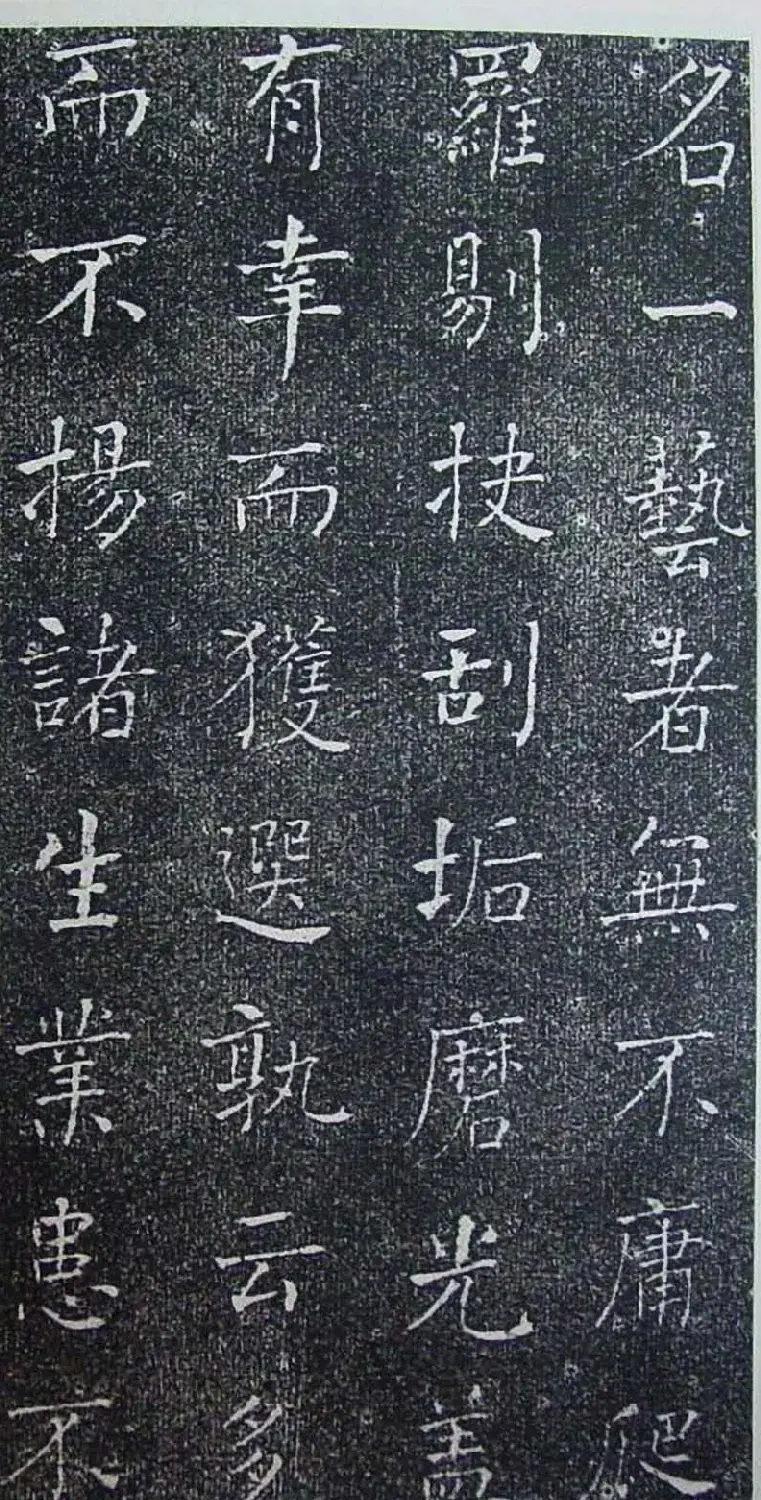 名一藝者無不庸爬
羅剔抉刮垢磨光蓋
有幸而獲選孰云多
而不揚諸生業患不